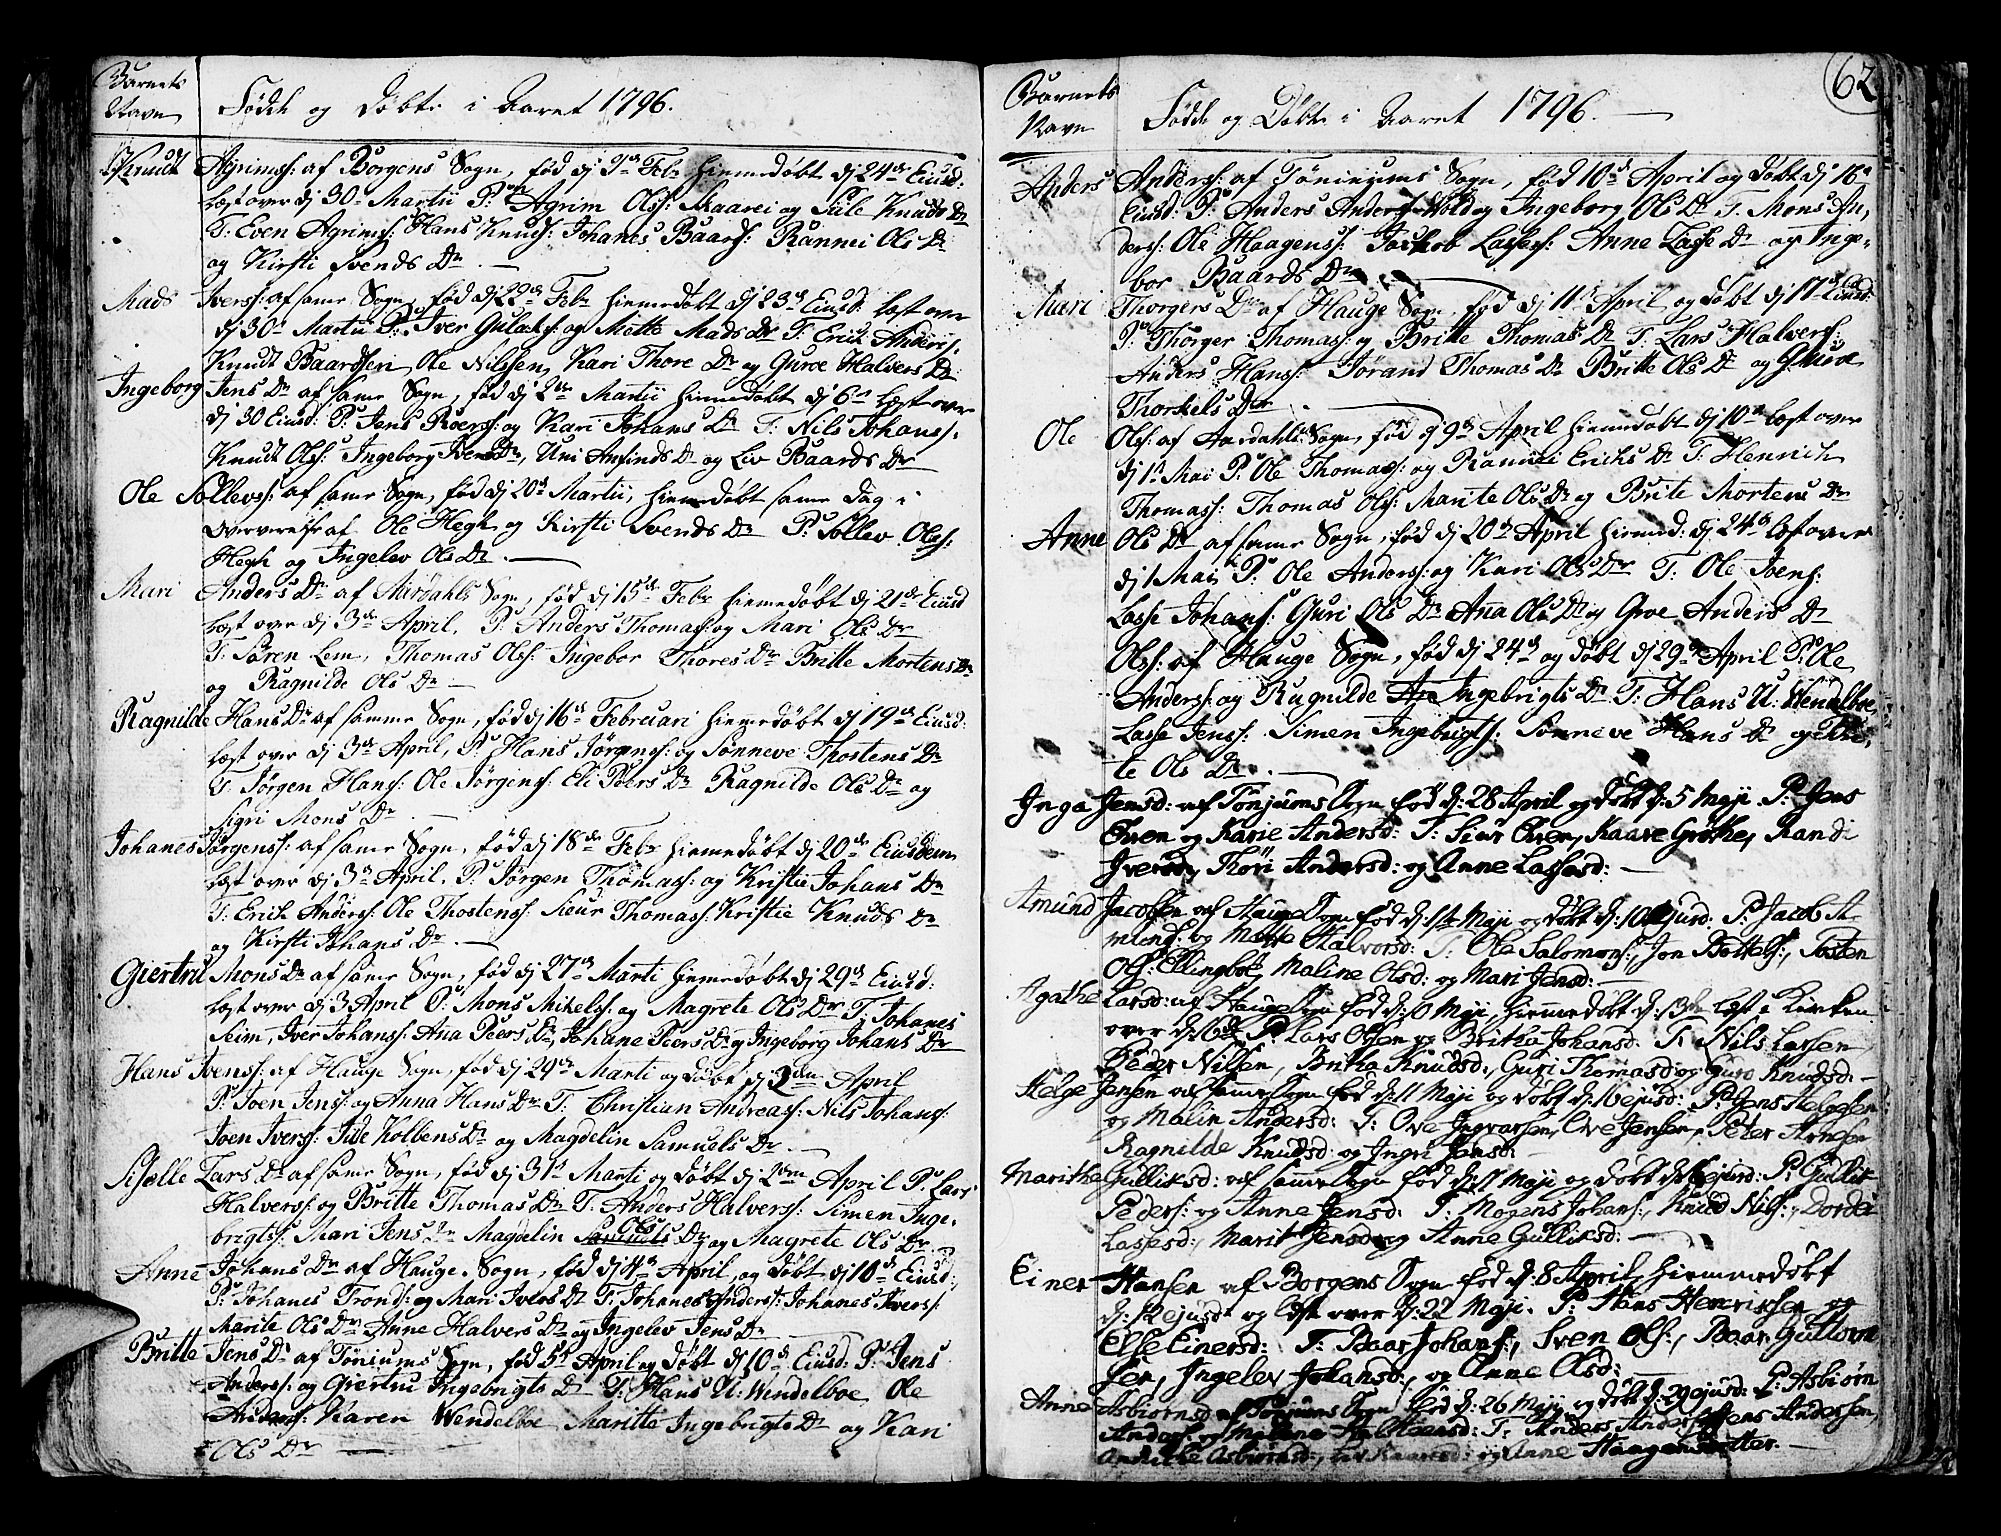 Barnets
Navn
Födde og Döbte i Aaret 1796.
Knudt Agrims: af Borgens Sogn, fød dj 9de Febr hiemedøbt dj 24de Eiusd:
læst over dj 30 Martii Pr Agrim Olss: Maarei og Sile Knuds Dr
T: Even Agrims: Hans Knuds: Johanes Baars: Rannei Ols Dr
og Kirsti Svends Dr
Mads Ivers: af same Sogn, fød dj 22de Febr hiemedøbt dj 23de Eiusd: læst over
dj 30 Martii Pr: Iver Gulachs: og Mette Mads Dr T: Erich Anders:
Knudt Baardsen, Ole Nilssen, Kari Thore Dr og Guroe Halvers Dr
Ingeborg Jens Dr af same Sogn, fød dj 2den Martii hiemedøbt dj 6te læst over
dj 30 Eiusd: Pr: Jens Roers: og Kari Johans Dr T: Nils Johans:
Knudt Ols: Ingeborg Ivens Dr, Uni Anfinds Dr og Liv Baards Dr
Ole Sollevs: af same Sogn, fød dj 20de Martii, hiemedøbt same dag i
overværelse af Ole Hegh og Kirsti Svends Dr Pr: Sollev Oles:
Hegh og Ingelev Ols Dr
Mari Anders Dr af Aardahls Sogn, fød dj 15de Febr hiemedøbt dj 21de Eiusd
læst over dj 3de April. Pr Anders Thomas: og Mari Ols Dr
T: Søren Lem, Thomas Ols: Ingebor Thores Dr Britte Mortens Dr
og Ragnilde Ols Dr
Ragnilde Hans Dr af samme Sogn, fød dj 16de Februari hiemedøbt dj 19de Eiusd:
læst over dj 3de April, Pr: Hans Jørgens: og Sønneve Thostens Dr
T: Jørgen Hans: Ole Jørgens: Eli Peers Dr Ragnilde Ols Dr og
Sigri Mons Dr
Johanes Jørgens: af same Sogn, fød dj 18de Febr hiemedøbt dj 20de Eiusdem
læst over dj 3de April. Pr Jørgen Thomas: og Kristie Johans Dr
T: Erich Anders: Ole Thostens: Sieur Thomas: Kristie Knuds Dr
og Kirsti Johans Dr
Giertru Mons Dr af same Sogn, fød dj 27de Marti hiemedøbt dj 29de Eiusd:
læst over dj 3 April Pr: Mons Mikels: og Magrete Ols Dr T: Johanes
Seim, Iver Johans: Ana Peers Dr, Johane Peers Dr og Ingeborg Johans Dr
Hans Ivens: af Hauge Sogn, fød dj 29de Marti og døbt dj 2den April
Pr Joen Jens: og Anna Hans Dr T: Christian Andreas: Nils Johans:
Joen Ivers: Side Kolbens Dr og Magdelin Samuels Dr
Siselle Lars Dr af same Sogn, fød dj 31te Marti og døbt dj 2den April Pr Lars
Halvers: og Britte Thomas Dr T: Anders Halvers: Simen Inge-
brigts: Mari Jens Dr Magdelin Samuels Ols Dr og Magrete Ols Dr
Anne Johans Dr af Hauge Sogn, fød dj 4de April, og døbt dj 10de Eiusd:
Pr: Johanes Tronds: og Mari Ivers Dr T: Johanes Anders: Johanes Ivers:
Marite Ols Dr Anne Halvers Dr og Ingelev Jens Dr
Britte Jens Dr af Tøniums Sogn, fød 5te April og døbt dj 10de Eiusd: Pr: Jens
Anders: og Giertru Ingebrigts Dr T: Hans U: Wendelboe Ole
Anders: Karen Wendelboe Maritte Ingebrigts Dr og Kari
Ols Dr
62
Barnets
Navn
Födde og Döbte i Aaret 1796.
Anders Anders: af Töniums Sogn, fød 10de April og døbt dj 16de
Eiusd: Pr: Anders Anders: Wold og Ingeborg Ols Dr T: Mons An-
ders: Ole Haagens: Jackob Lasses: Anne Lasse Dr og Inge-
bor Baards Dr
Mari Thorgers Dr af Hauge Sogn, fød dj 11te April og døbt dj 17de Eiusd:
Pr Thorger Thomas: og Britte Thomas Dr T: Lars Halvers:
Anders Hans: Jørand Thomas Dr Britte Ols Dr og Guroe
Thorkels Dr
Ole Ols: af Aardahls Sogn, fød dj 9de April hiemedøbt dj 10de læst over
dj 1te Mai Pr: Ole Thomas: og Rannei Erichs Dr T: Henrich
Thomas: Thomas Ols: Marite Ols Dr og Brite Mortens Dr
Anne Ols Dr af same Sogn, fød dj 20de April hiemed: dj 24de læst over
dj 1 Mai, Pr: Ole Anders: og Kari Ols Dr T: Ole Ivens:
Lasse Johans: Guri Ols Dr Ana Ols Dr og Groe Anders Dr
Ols: af Hauge Sogn, fød dj 24de og døbt dj 29de April Pr: Ole
Anders: og Ragnilde Ingebrigts Dr T: Hans U: Wendelboe,
Lasse Jens: Simen Ingebrigts: Sønneve Hans Dr og
te Ols Dr.
Inga Jensd: af Tönjums Sogn fød d: 28 April og døbt d: 5 Maji. P: Jens
Iversen og Karie Andersd: T: Siur Iversen, Kaare Grøthe, Randi
Iversd, Thori Andersd: og Anne Lassesd:
Amund Jacobsen af Hauge Sogn fød d: 1te Maji og døbt d: 10 Ejusd: P: Jacob A-
munds: og Mette Halvorsd: T: Ole Salomons:, Jon Bottels:, Tosten
Ols: Ellingboe, Maline Olsd: og Mari Jensd:
Agathe Larsd: af Hauge Sogn fød d: 10 Maji, hiemmedøbt d: 13de læst i Kirken
over d: 16de P: Lars Olsen og Britha Johansd: T: Nils Larsen,
Peder Nilsen, Britha Knudsd:, Guri Thomasd og Guro Knudsd:
Helge Jensen af samme Sogn fød d: 11 Maji og døbt d: 16 ejusd: P: Jens Helgesen
og Malin Andersd: T: Ove Ingvarsen, Ove Jensen, Peter Arnesen
Ragnilde Knudsd: og Ingri Jensd:
Marithe Gulliksd: af samme Sogn fød d: 11 Maji og døbt d: 16 ejusd: P: Gullik
Peders: og Anne Jensd: T: Mogens Johans:, Knud Nils:, Dordei
Lassesd:, Marit Jensd: og Anne Gulliksd:
Einer Hansen af Borgens Sogn fød d: 8 April, hiemmedøbt
d: ejusd: og læst over d: 22 Maji. P: Hans Henriksen og
Else Einersd: T: Baar Johans:, Sven Ols:, Baar Guttorm
sen, Ingelev Johansd:, og Anne Olsd:
Anne Asbiørnsd: af Tønjums Sogn fød d: 26 Maji og døbt d: 29 ejusd: P: Asbiørn
Anders: og Malene T: Anders Anders: Jens Andersen
Asbiørnsd:, Liv Baarsd: og Anne Haagensdatter.